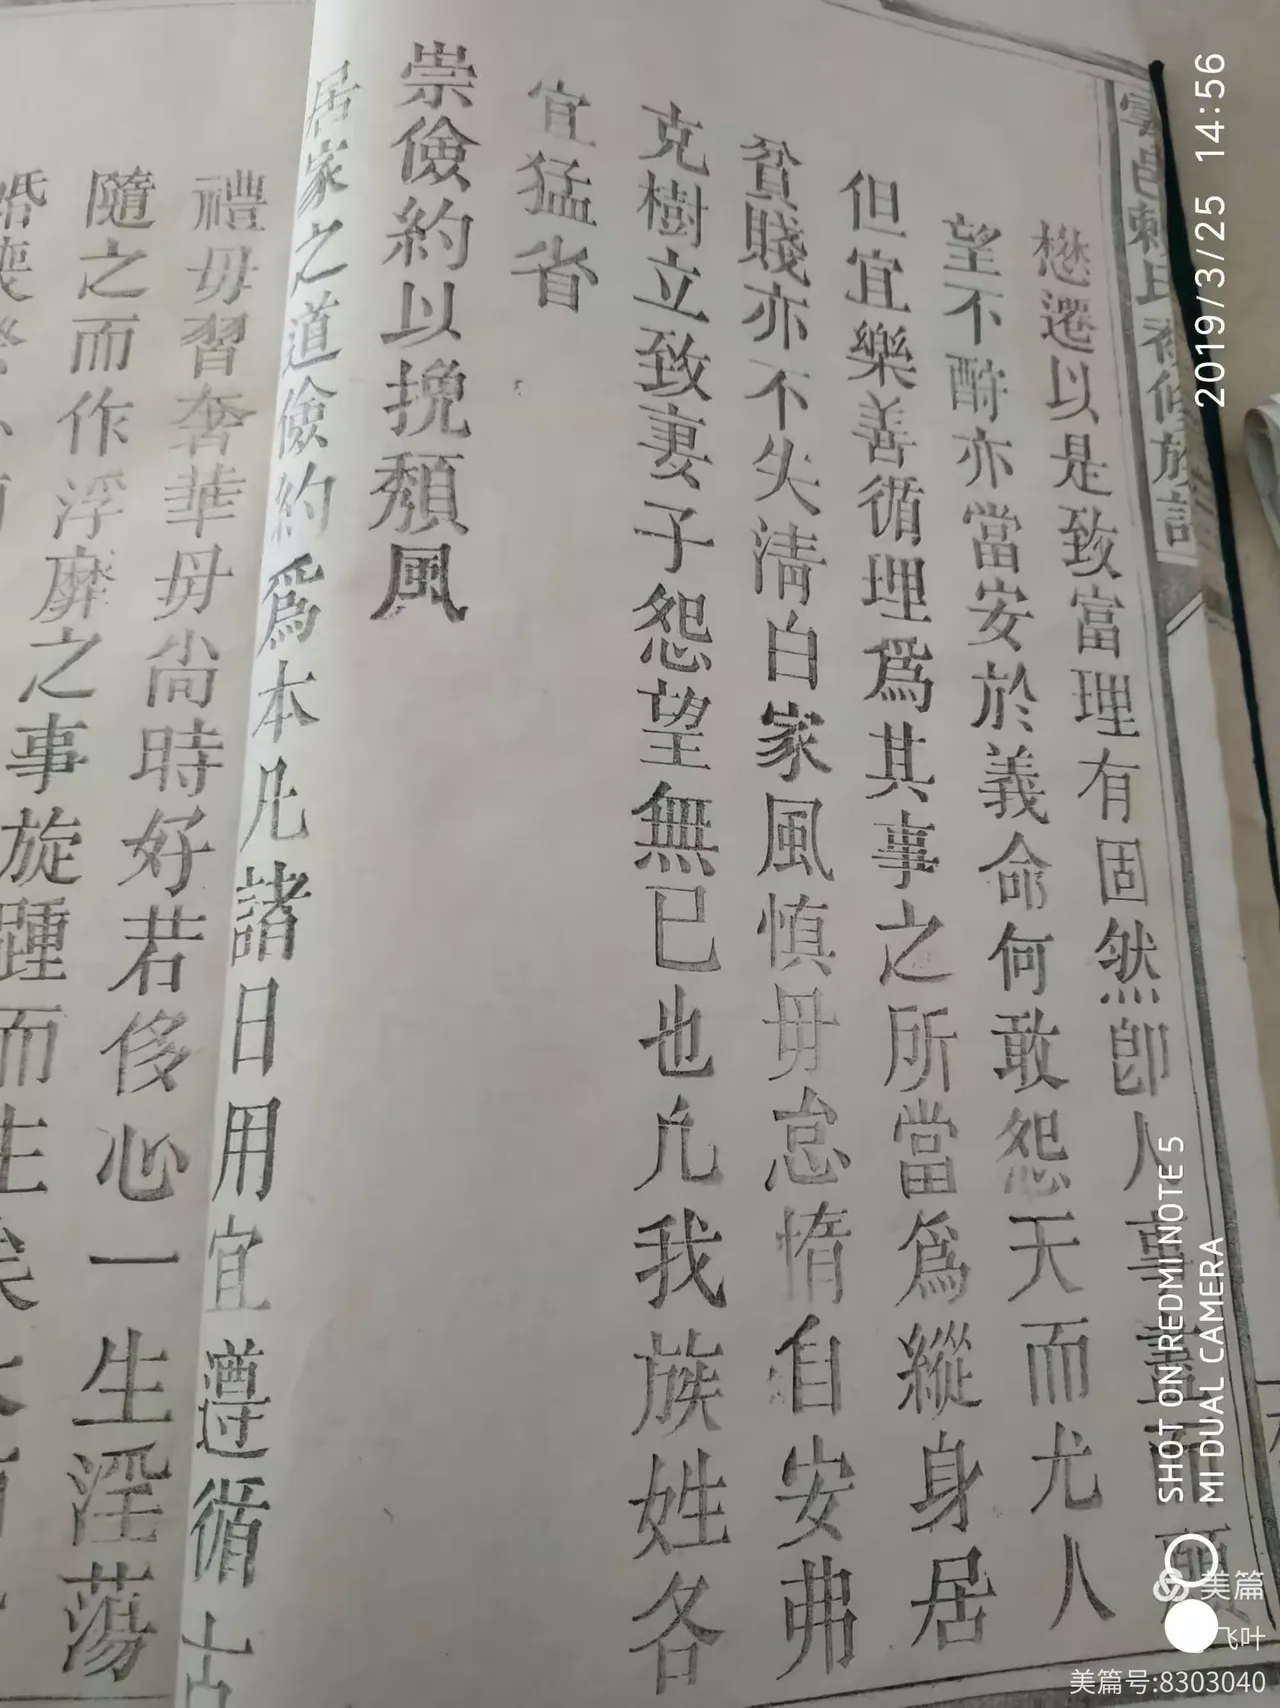 懋遷以是致富理有固然卽人事盡而願
望不酧亦當安於義命何敢怨天而尤人
但宜樂善循理爲其事之所當爲縱身居
貧賤亦不失清白家風慎毋怠惰自安弗
克樹立致妻子怨望無已也凢我族姓各
宜猛省
崇儉約以挽頽風
居家之道儉約爲本凢諸日用宜遵循古
禮毋習奢華毋尚時好若侈心一生淫蕩
隨之而作浮靡之事旋踵而生
2019/3/25 14:56
SHOT ON REDMI NOTE 5
MI DUAL CAMERA
美篇
飞叶
美篇号:8303040